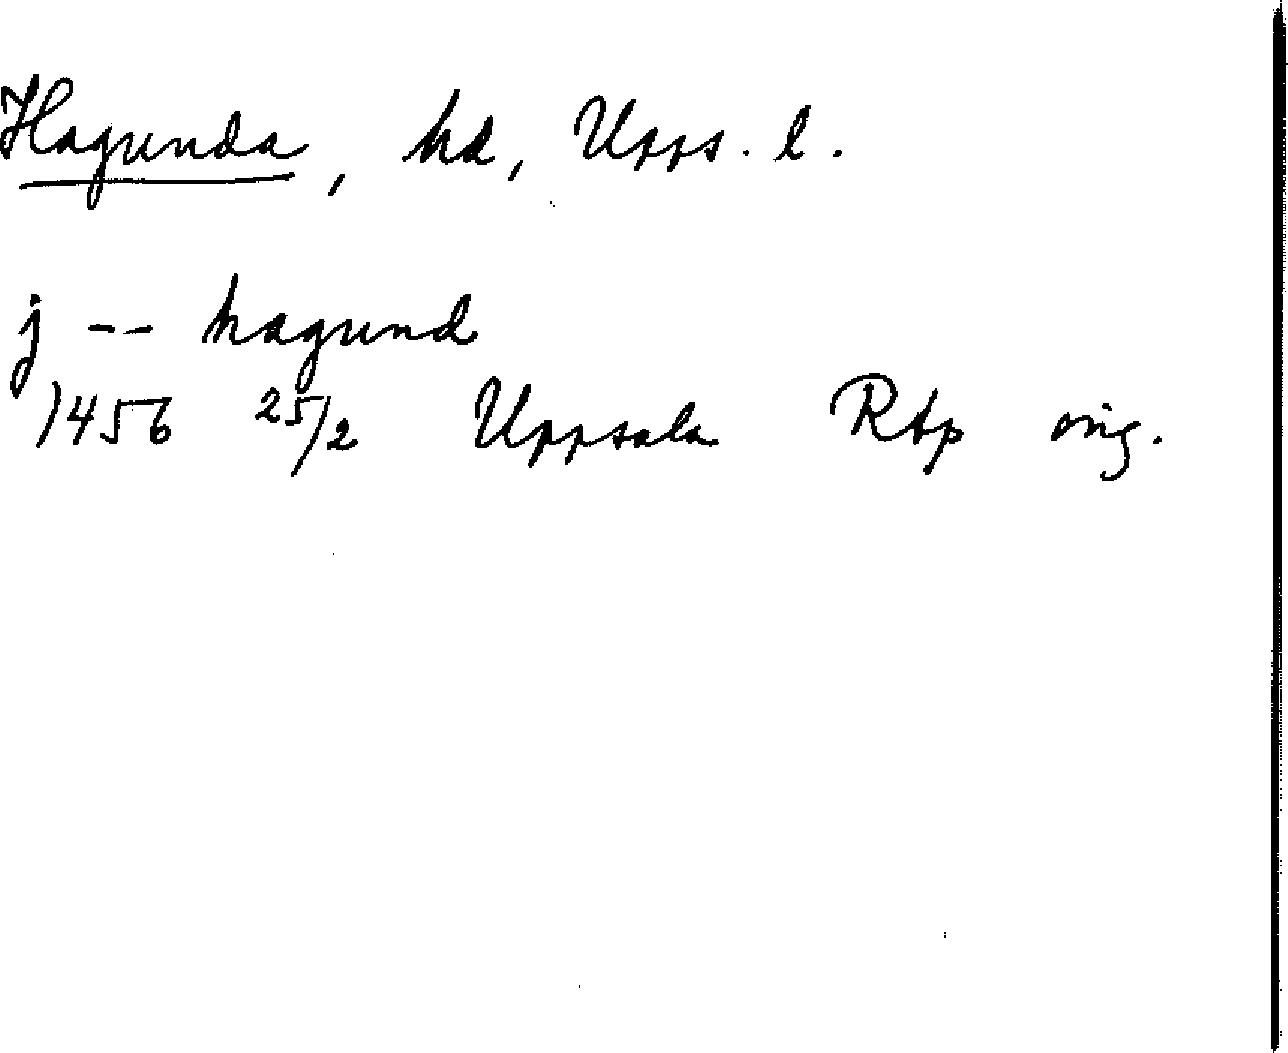 Hagunda, hd, Upps. l.
j -- hagund
1456 25/2 Uppsala Rbp orig.